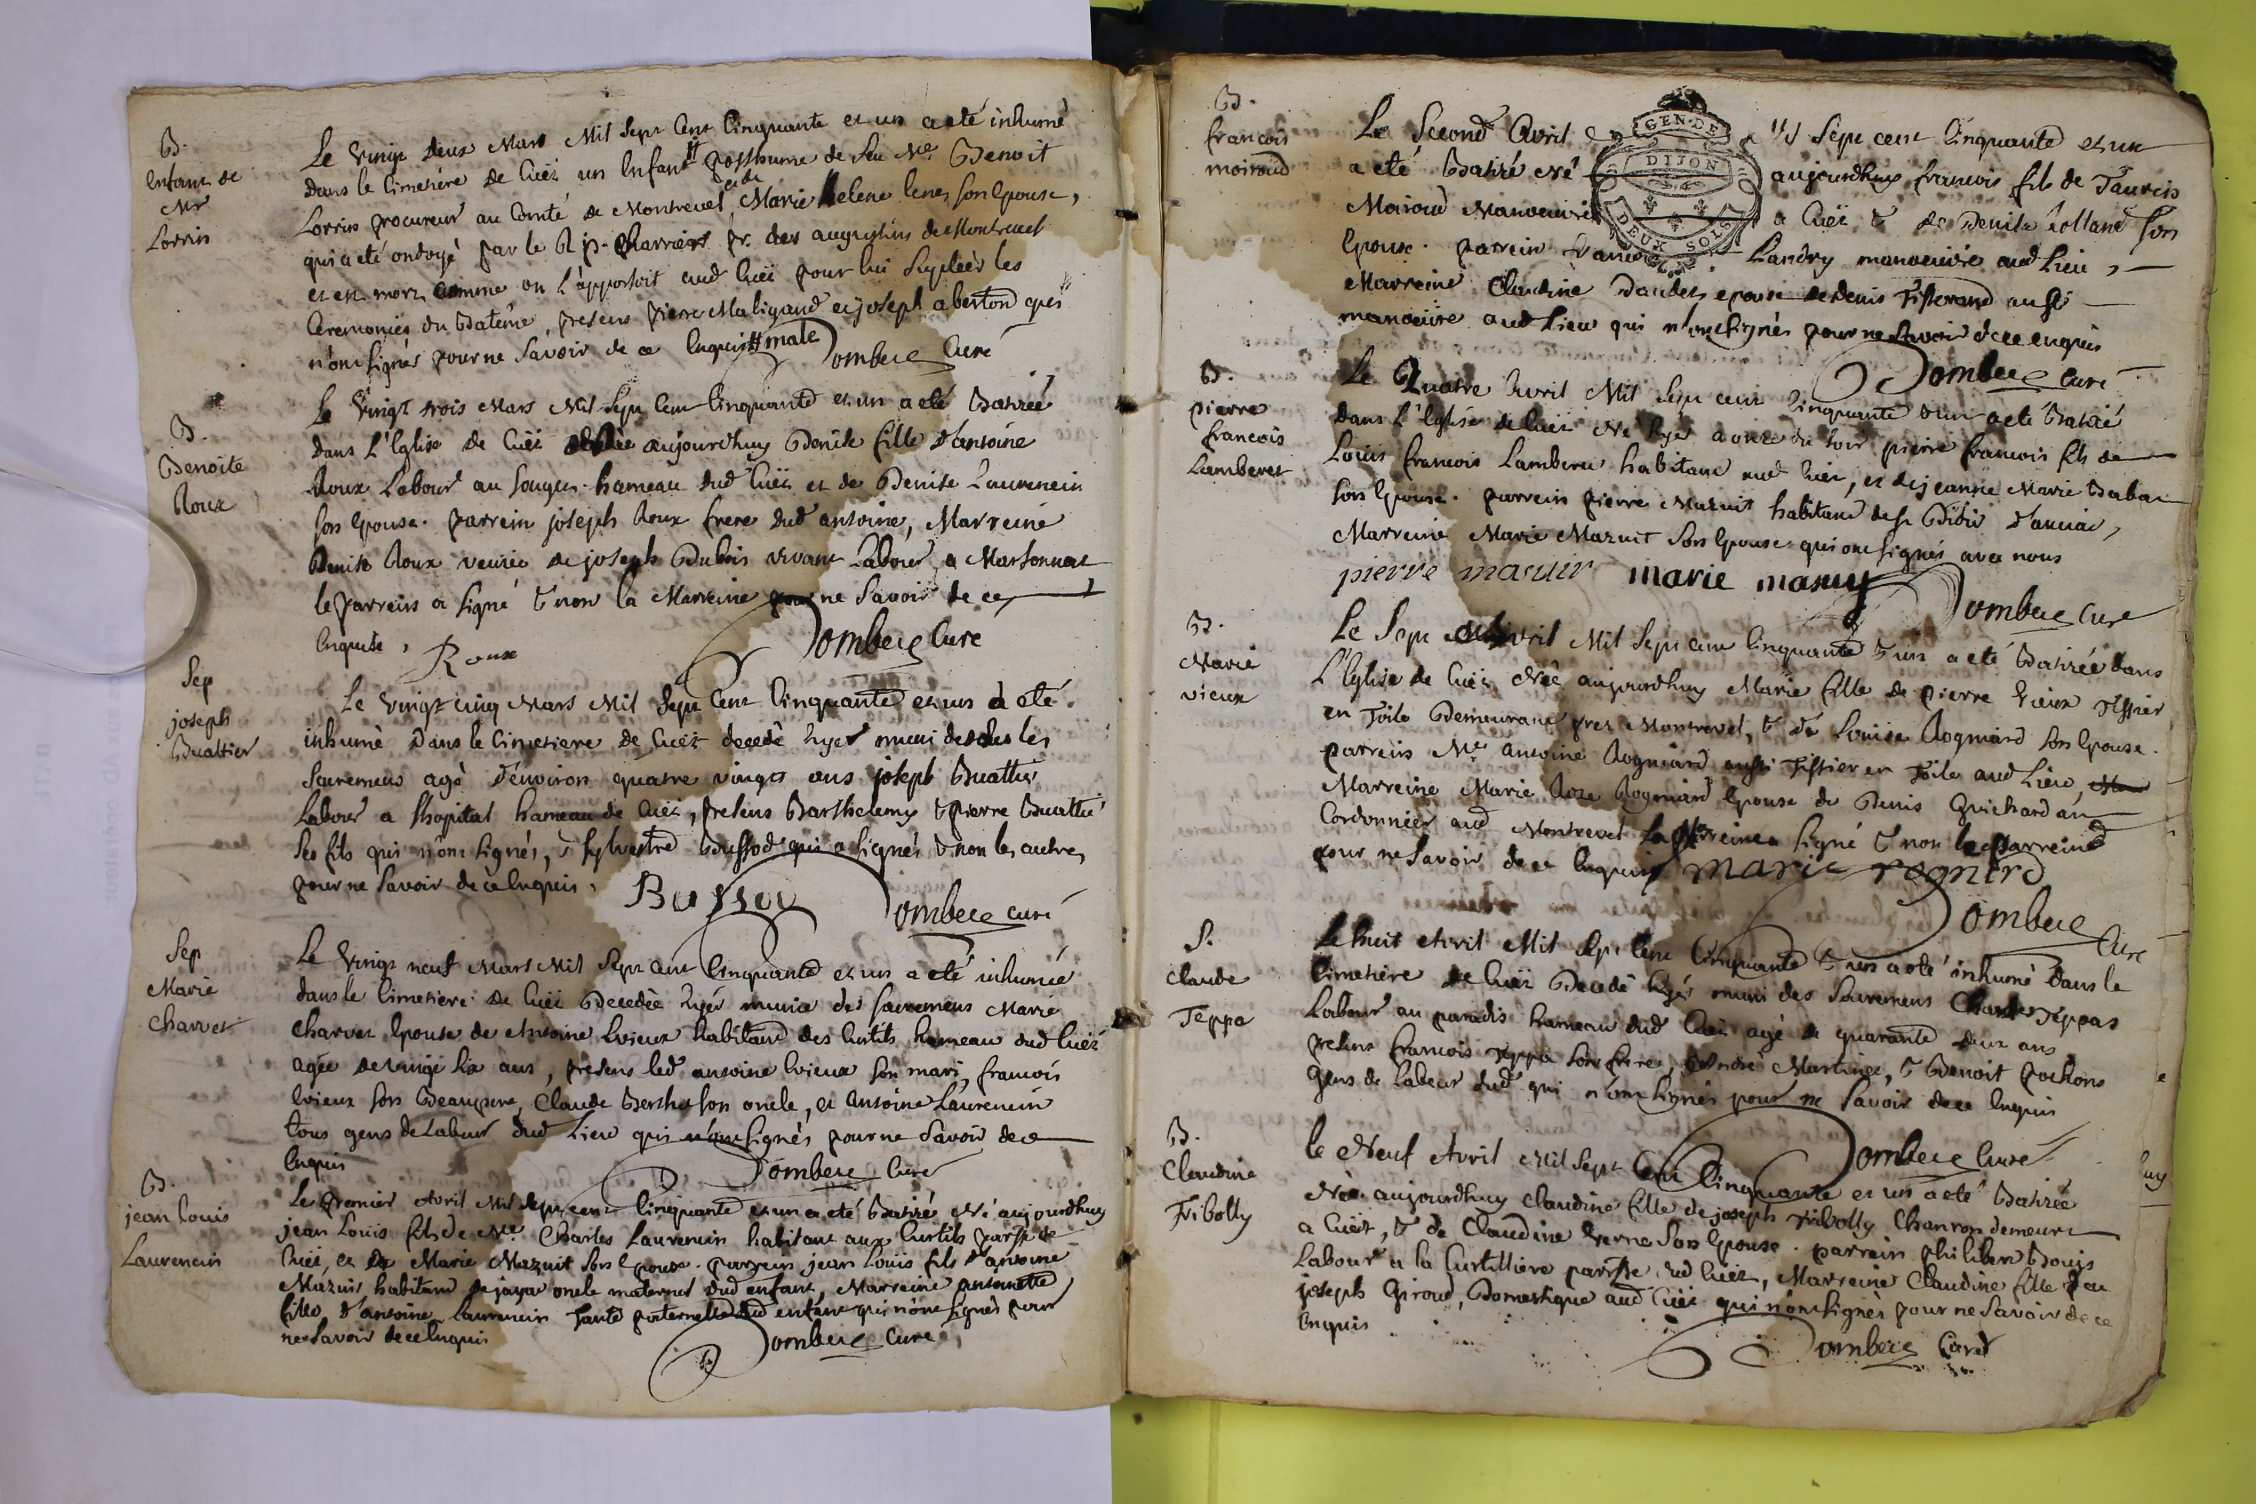 B.
Enfant de
Mr
Lorrin
Le vingt deux Mars Mil Sept Cent Cinquante et un a eté inhumé
dans le Cimetiere de Cuët un Enfant # posthume de feu Me. Benoit
Lorrin procureur au Comté de Montrevel, et de Marie Helene son Epouse,
qui a eté ondoyé par le R. p. Charriere pr. des augustins de Montrevel
et est mort comme on l'apportoit aud Cuët pour lui Supleér les
Ceremonies du Batême, presens Pierre Maligand et joseph aberton qui
n'ont signés pour ne Savoir de ce Enquis # male Dombeie Curé
B.
Benoite
Roux
Le Vingt trois Mars Mil Sept Cent Cinquante et un a eté Batizée
dans L'Eglise de Cuët aujourdhuy Denise fille d'antoine
Roux Labour au Souget hameau dud Cuët et de Denise Laurencin
son Epouse. parrein joseph Roux frere dud antoine, Marreine
Denise Roux veuve de joseph Dubois vivant Labour a Marsonnat
le parrein a signé & non la Marreine pour ne Savoir de ce
Enquise, Roux Dombeie Curé
Sep
joseph
Buattier
Le Vingt cinq Mars Mil Sept Cent Cinquante et un a eté
inhumé Dans le Cimetiere de Cuët decedé hyer muni de les
Sacremens agé d'environ quatre vingts ans joseph Buattier
Labour a l'hopital hameau de Cuët, presens Barthelemy & Pierre Buattié
Ses fils qui n'ont signés, & Sylvestre Bussod qui a signés & non les autres
pour ne Savoir de ce Enquis. Bussod Dombeie curé
Sep
Marie
Charvet
Le Vingt neuf Mars Mil Sept cent Cinquante et un a eté inhumée
dans le Cimetiere de Cuët Decedée hyer munie des Sacremens Marie
Charvet Epouse de Antoine Vvieux habitant des Curtils hameau dud Cuët
agée de vingt six ans, presens led antoine Vvieux Son mari, francois
Vvieux son Beaupere, Claude Berthet son oncle, et Antoine Laurencin
tous gens de Labeur dud Lieu qui n'ont signés pour ne Savoir de ce
Enquis Dombeie Curé
B.
jean Louis
Laurencin
Le premier Avril Mil Sept cent Cinquante et un a eté Batizé Né aujourdhuy
jean Louïs fils de Me Charles Laurencin habitant aux Curtils parsse de
Cuët, et de Marie Mazuit Son Epouse. parrein jean Louïs fils d'antoine
Mazuit habitant de jayat oncle maternel dud enfant, Marreine antoinette
fille d'antoine Laurencin tante paternelle dud enfant qui n'ont signés pour
ne Savoir de ce Enquis Dombeie Curé
B.
francois
moiroud
Le Second Avril Mil Sept cent Cinquante et un
GEN. DE
DIJON
DEUX SOLS
a eté Batizé Né aujourdhuy francois fils de Taurin
Moiroud Manoeuvre a Cuët & de Denise Rolland Son
Epouse. parrein Francois Landry manoeuvre aud Lieu,
Marreine Claudine Daudet epouse de Denis Tisserand aussi
manoeuvre aud Lieu qui n'ont signés pour ne Savoir de ce enquis
Dombeie Curé
B.
pierre
francois
Lamberet
Le Quatre Avril Mil Sept cent Cinquante & un a eté Batizé
Dans L'Eglise de Cuët Né hyer a onze du soir pierre francois fils de
Louïs francois Lamberet habitant aud Cuët, et de jeanne Marie Babad
son Epouse. parrein pierre Mazuit habitant de St Didier d'aucia,
Marreine Marie Mazuit Son Epouse qui ont signés avec nous
pierre masuir marie masuy Dombeie Curé
B.
Marie
vieux
Le Sept Avril Mil Sept cent Cinquante & un a eté Batizée dans
L'Eglise de Cuët Née aujourdhuy Marie fille de pierre Vieux Tissier
en Toile Demeurant pres Montrevel, & de Louïse Rogniard son Epouse.
parrein Me antoine Rogniard aussi Tissier en Toile aud Lieu,
Marreine Marie Roze Rogniard Epouse de Denis Guichardan
Cordonnier aud Montrevel La Marreine a signé & non le parrein
pour ne Savoir de ce Enquis marie rognird
Dombeie Curé
S.
Claude
Teppe
Le huit Avril Mil Sept Cent Cinquante & un a eté inhumé dans le
Cimetiere de Cuët Decedé hyer muni des Sacremens Claude Teppas
Labour au paradis hameau dud Cuët agé de quarante deux ans
presens francois Teppe son frere, André Martinet, & Benoit Pochons
Gens de Labeur dud qui n'ont signés pour ne Savoir de ce Enquis
Dombeie Curé
B.
Claudine
Tribolly
le Neuf Avril Mil Sept Cent Cinquante et un a eté Batizée
Née aujourdhuy Claudine fille de joseph Tribolly Charron demeurt
a Cuët, & de Claudine Verne Son Epouse. parrein philibert Bouis
Labour a la Curtilliere parsse dud Cuët, Marreine Claudine fille d'eu
joseph Giroud, Domestique aud Cuët qui n'ont signés pour ne Savoir de ce
Enquis Dombeie Curé